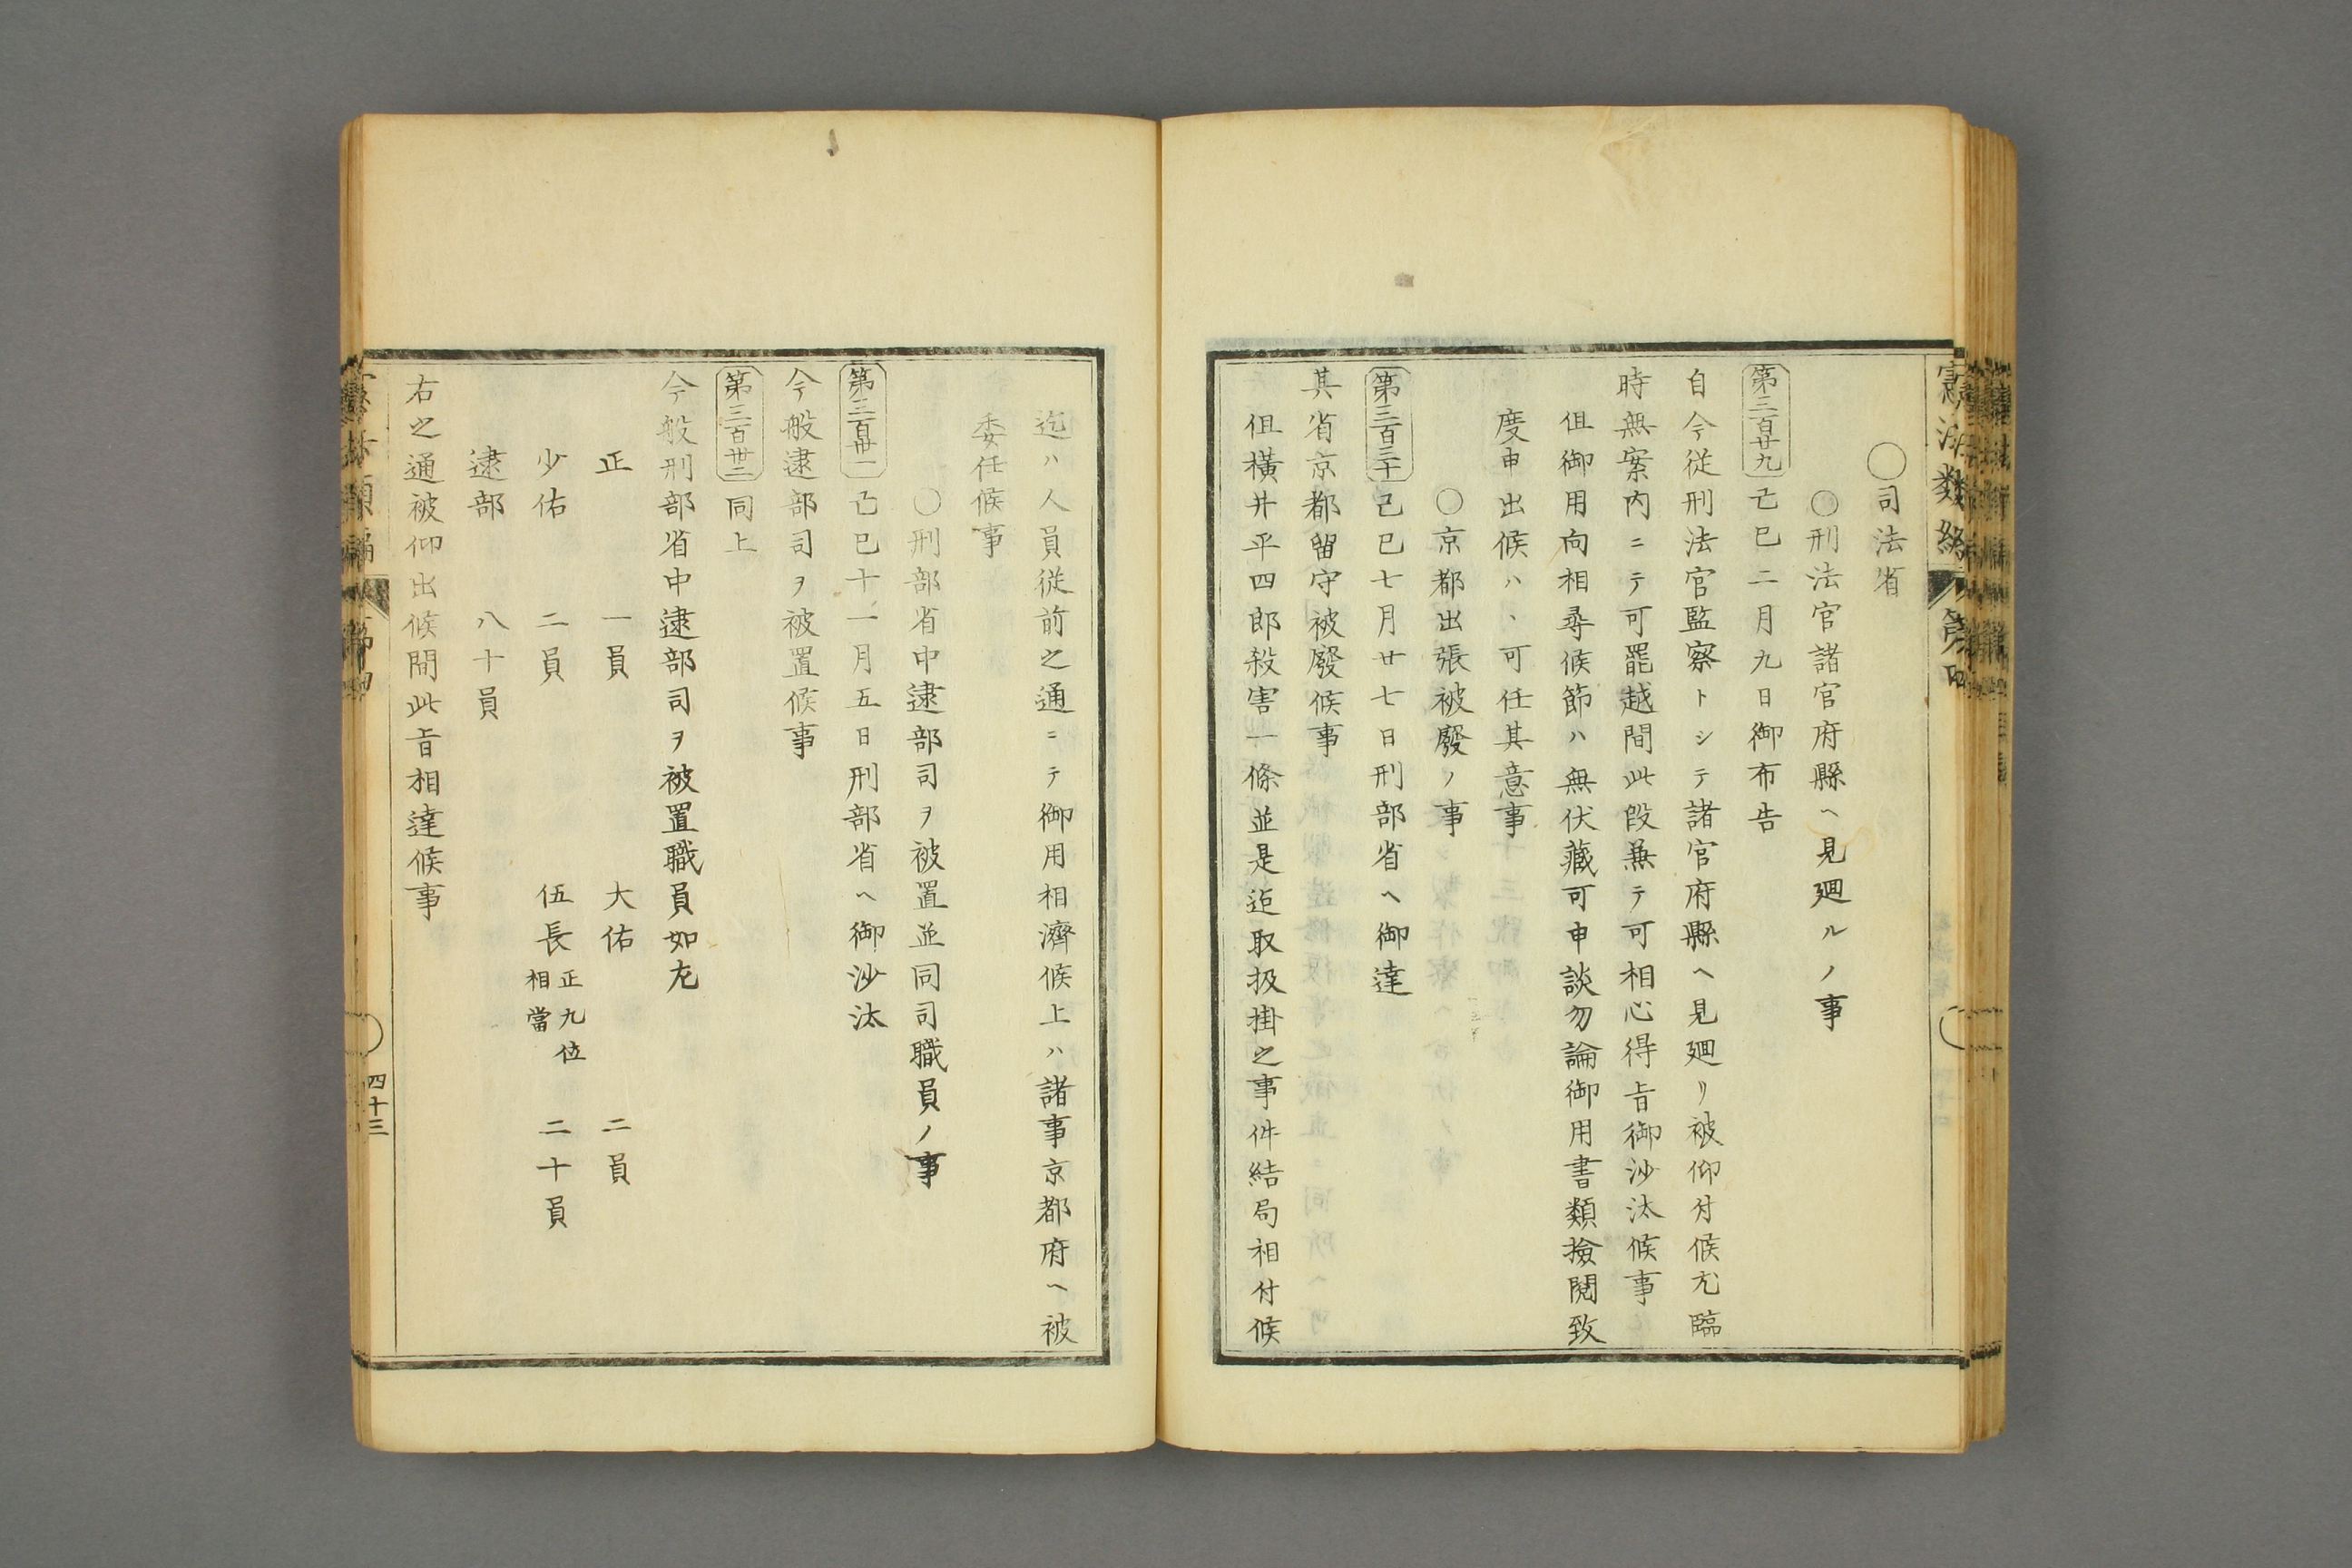 〇司法省
〇刑法官諸官府縣ヘ見廻ルノ事
第三百廿九 己巳二月九日御布告
自今従刑法官監察トシテ諸官府縣ヘ見廻リ被仰付候尤臨
時無案内ニテ可罷越間此段兼テ可相心得旨御沙汰候事
但御用向相尋候節ハ無伏藏可申談勿論御用書類撿閲致
度申出候ハヽ可任其意事
〇京都出張被廢ノ事
第三百三十 己巳七月廿七日刑部省ヘ御達
其省京都留守被廢候事
但横井平四郎殺害一條並是迄取扱掛之事件結局相付候
迄ハ人員従前之通ニテ御用相濟候上ハ諸事京都府ヘ被
委任候事
〇刑部省中逮部司ヲ被置並同司職員ノ事
第三百卅一 己巳十一月五日刑部省ヘ御沙汰
今般逮部司ヲ被置候事
第三百卅二 同上
今般刑部省中逮部司ヲ被置職員如左
正 一員 大佑 二員
少佑 二員 伍長 正九位相當 二十員
逮部 八十員
右之通被仰出候間此旨相達候事
四十三